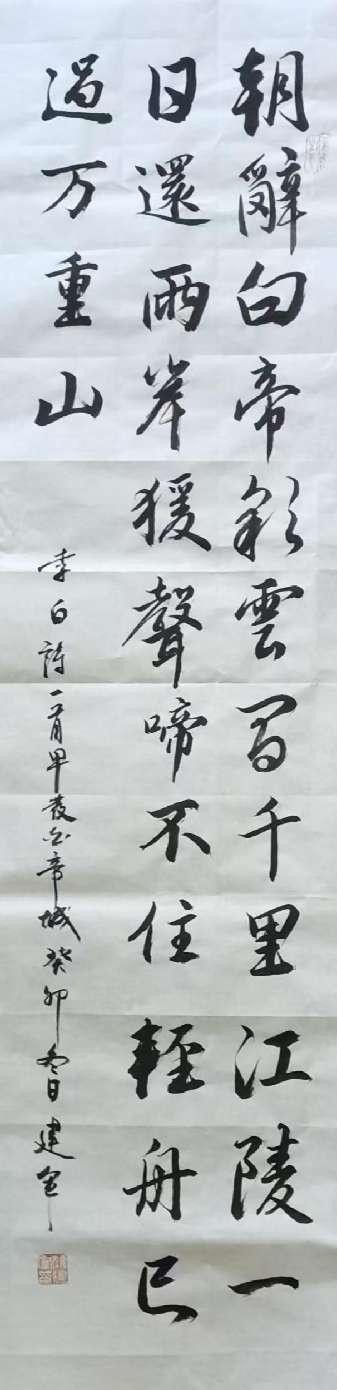 朝辭白帝彩雲間千里江陵一
日還兩岸猨聲啼不住輕舟已
過万重山
李白詩一首早發白帝城癸卯冬日建軍